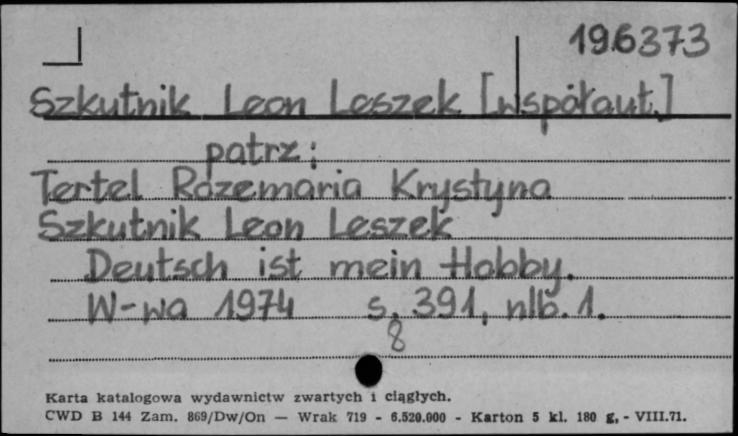 196373
Szkutnik Leon Leszek [współaut.]
patrz:
Tertel Rozemaria Krystyna
Szkutnik Leon Leszek
Deutsch ist mein Hobby.
W-wa 1974 s. 391, nlb. 1.
8
Karta katalogowa wydawnictw zwartych i ciągłych.
CWD B 144 Zam. 869/Dw/On — Wrak 719 - 6.520.000 - Karton 5 kl. 180 g, - VIII.71.